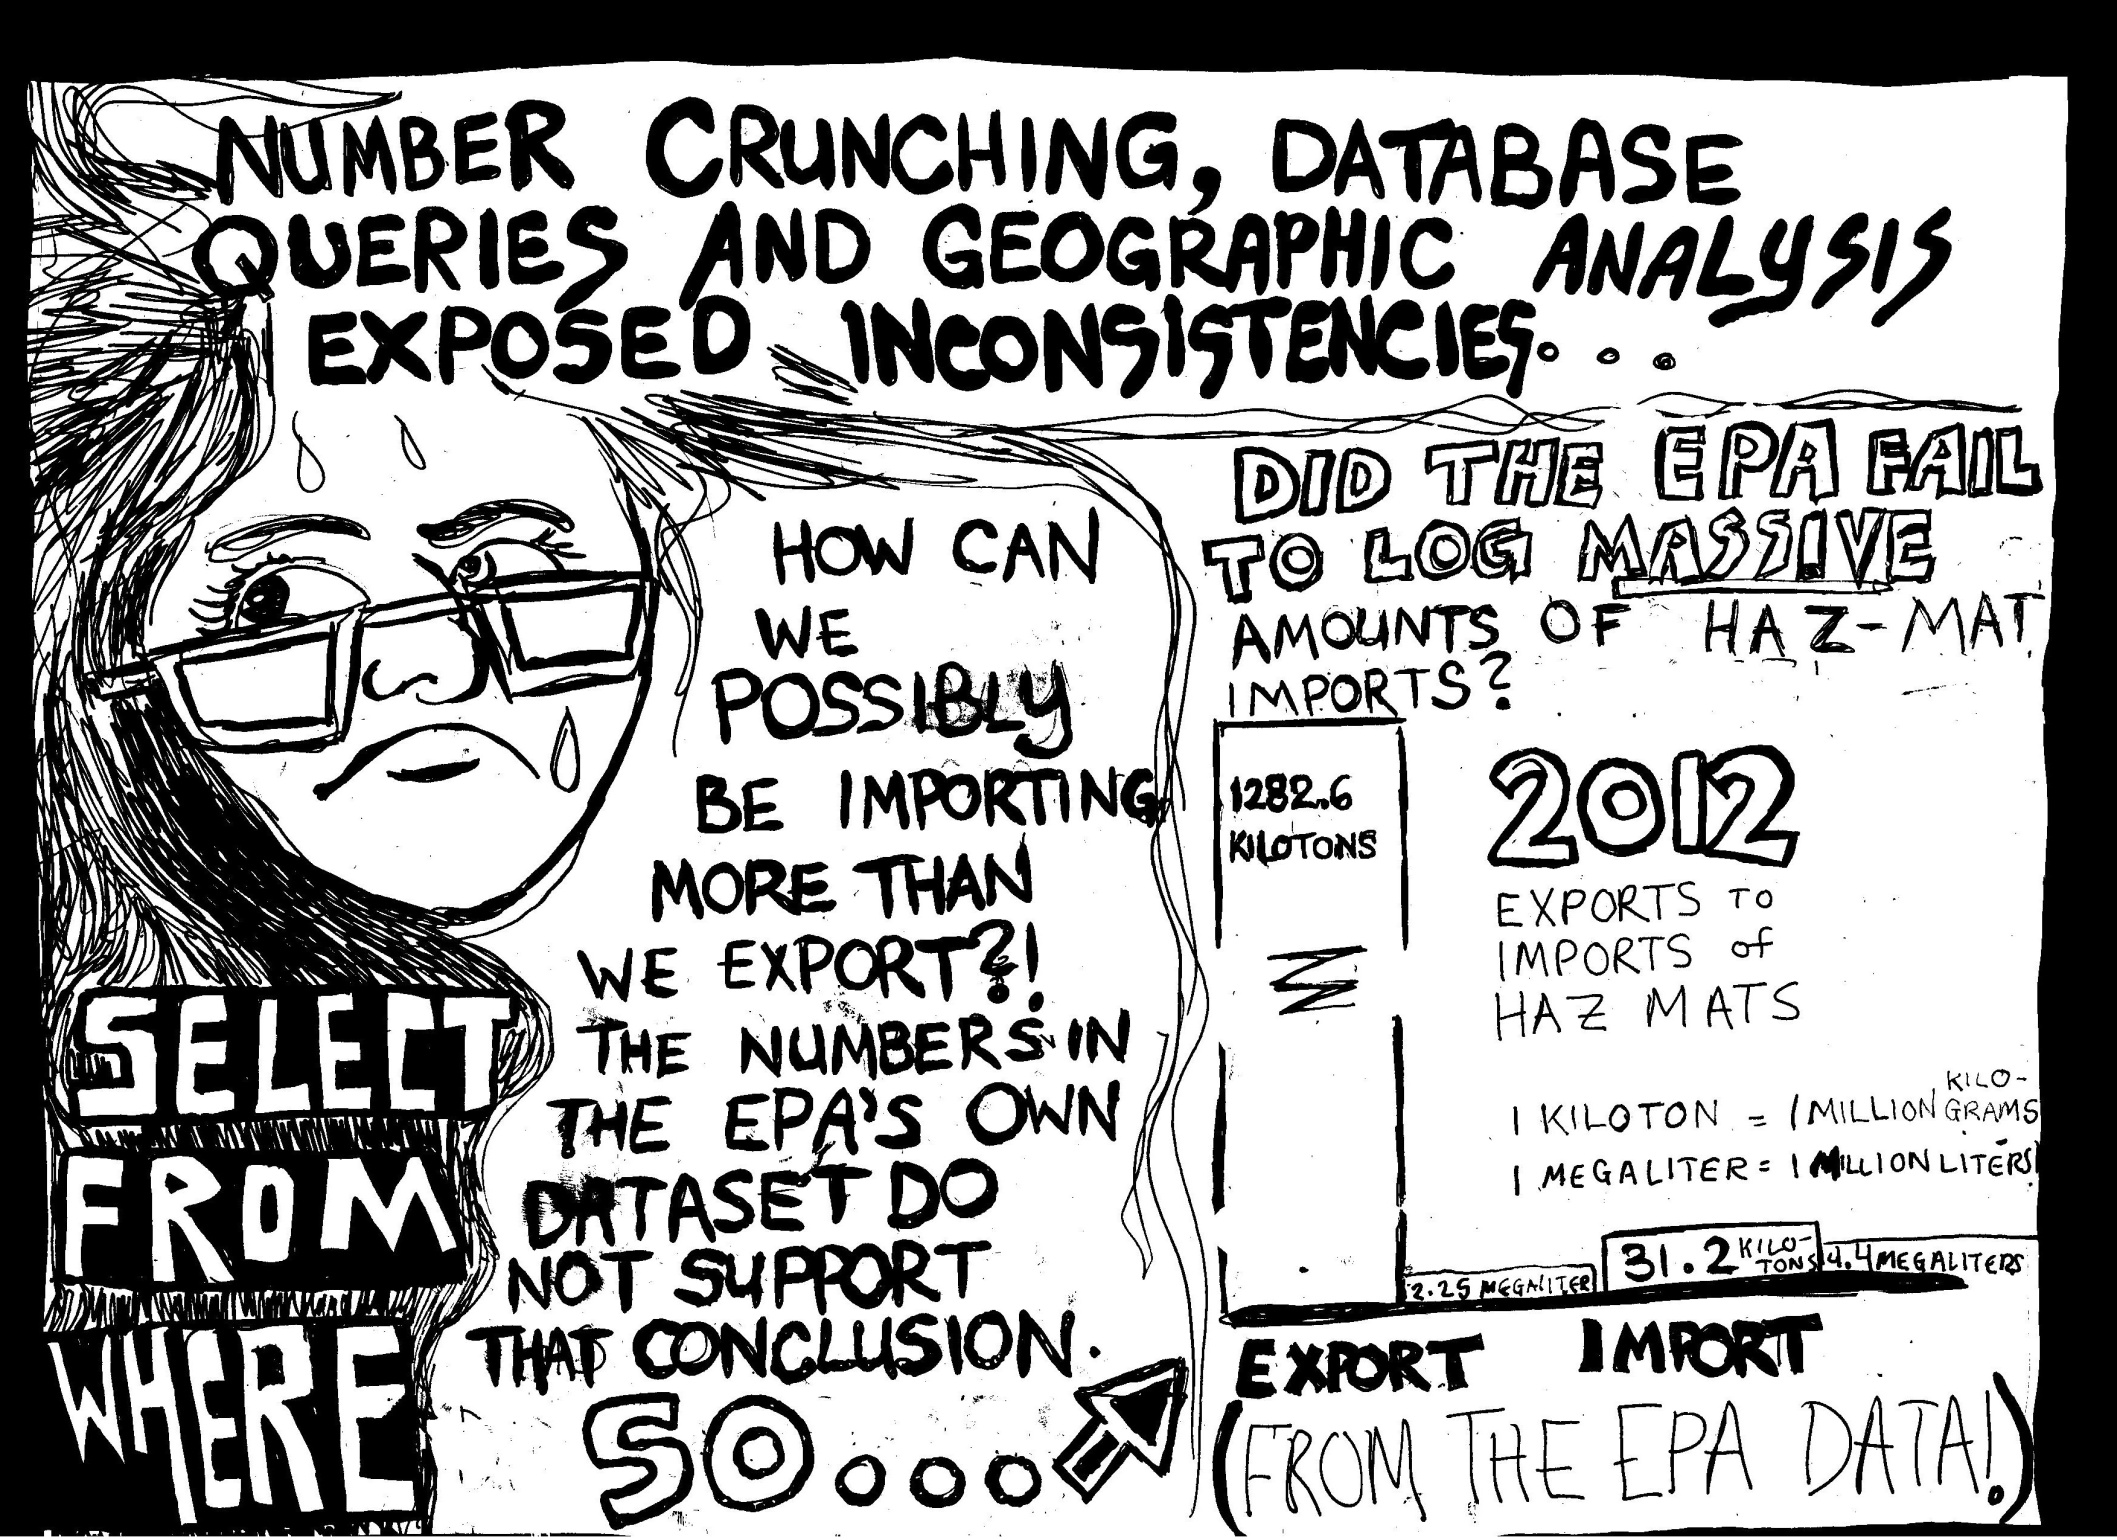 NUMBER CRUNCHING, DATABASE
QUERIES AND GEOGRAPHIC ANALYSIS
EXPOSED INCONSISTENCIES...
HOW CAN
WE
POSSIBLY
BE IMPORTING
MORE THAN
WE EXPORT?!
THE NUMBERS IN
THE EPA'S OWN
DATASET DO
NOT SUPPORT
THAT CONCLUSION.
SO...
SELECT
FROM
WHERE
DID THE EPA FAIL
TO LOG MASSIVE
AMOUNTS OF HAZ-MAT
IMPORTS?
1282.6
KILOTONS
2012
EXPORTS TO
IMPORTS of
HAZ MATS
1 KILOTON = 1 MILLION KILO-
GRAMS
1 MEGALITER = 1 MILLION LITERS
2.25 MEGALITER
31.2 KILO-
TONS
4.4 MEGALITERS
EXPORT IMPORT
(FROM THE EPA DATA!)